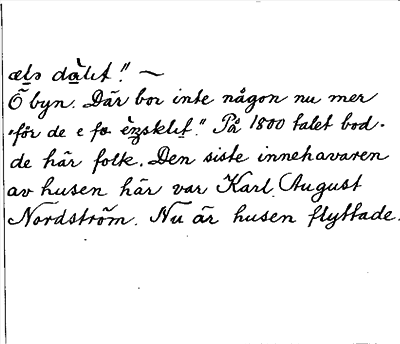 æls dàlıt!" —
Ö byn. Där bor inte någon nu mer
"för de e fo èṇsklıt." På 1800 talet bod-
de här folk. Den siste innehavaren
av husen här var Karl August
Nordström. Nu är husen flyttade.